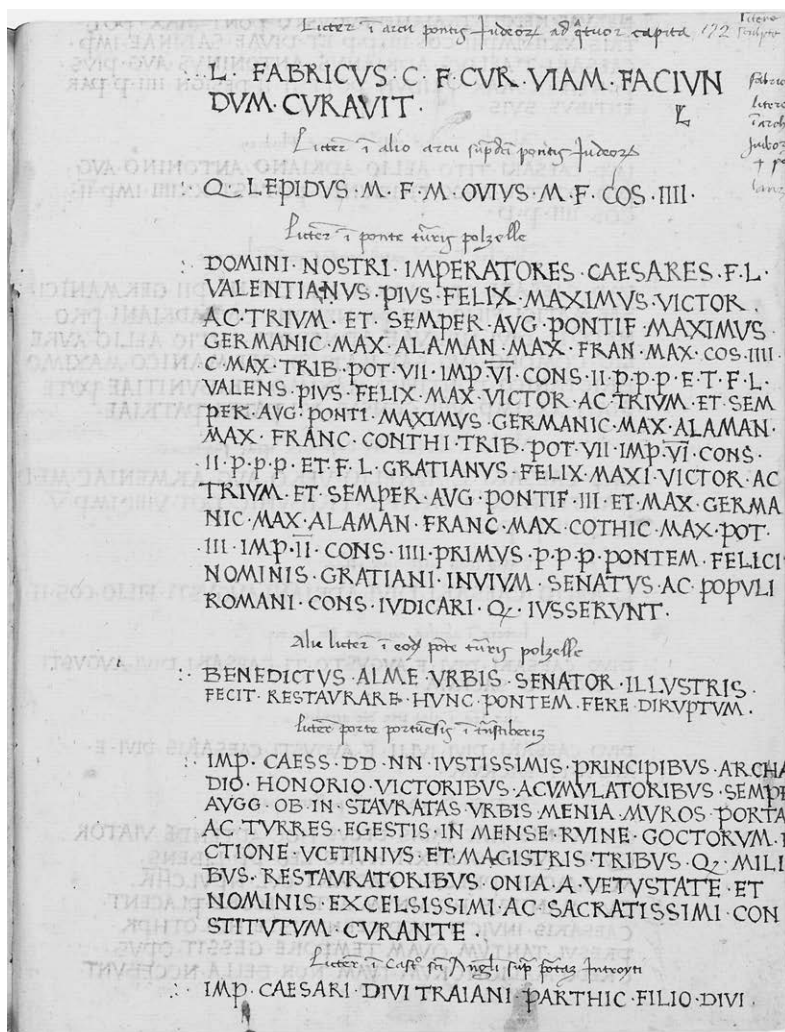 Litteræ ĩ arcu pontis Judeoꝝ ad q̃tuor capita 172
L · FABRICVS · C · F · CVR · VIAM · FACIVN
DVM · CVRAVIT ·
Litteræ ĩ alio arcu sup̃dc̃i pontis Judeoꝝ
Q · LEPIDVS · M · F · M · OVIVS · M · F · COS · IIII ·
Litteræ ĩ ponte turris polzelle
DOMINI · NOSTRI · IMPERATORES · CAESARES · F · L ·
VALENTIANVS · PIVS · FELIX · MAXIMVS · VICTOR ·
AC · TRIVM · ET · SEMPER · AVG · PONTIF · MAXIMVS ·
GERMANIC · MAX · ALAMAN · MAX · FRAN · MAX · COS · IIII ·
C · MAX · TRIB · POT · VII · IMP · VI · CONS · II · P · P · P · E · T · F · L ·
VALENS · PIVS · FELIX · MAX · VICTOR · AC · TRIVM · ET · SEM
PER · AVG · PONTI · MAXIMVS · GERMANIC · MAX · ALAMAN ·
MAX · FRANC · CONTHI · TRIB · POT · VII · IMP · VI · CONS ·
II · P · P · P · ET · F · L · GRATIANVS · FELIX · MAXI · VICTOR · AC
TRIVM · ET · SEMPER · AVG · PONTIF · III · ET · MAX · GERMA
NIC · MAX · ALAMAN · FRANC · MAX · COTHIC · MAX · POT ·
III · IMP · II · CONS · IIII · PRIMVS · P · P · P · PONTEM · FELICI
NOMINIS · GRATIANI · INVIVM · SENATVS · AC · POPVLI
ROMANI · CONS · IVDICARI · Q · IVSSERVNT ·
Alie litteræ ĩ eod̃ põte turris polzelle
BENEDICTVS · ALME · VRBIS · SENATOR · ILLVSTRIS ·
FECIT · RESTAVRARE · HVNC · PONTEM · FERE · DIRVPTVM ·
Litteræ porte portuesis ĩ trãstiberiz
IMP · CAESS · DD · NN · IVSTISSIMIS · PRINCIPIBVS · ARCHA
DIO · HONORIO · VICTORIBVS · ACVMVLATORIBVS · SEMPE
AVGG · OB · IN · STAVRATAS · VRBIS · MENIA · MVROS · PORTA
AC · TVRRES · EGESTIS · IN · MENSE · RVINE · GOCTORVM ·
CTIONE · VCETINIVS · ET · MAGISTRIS · TRIBVS · Q · MILI
BVS · RESTAVRATORIBVS · ONIA · A · VETVSTATE · ET
NOMINIS · EXCELSISSIMI · AC · SACRATISSIMI · CON
STITVTVM · CVRANTE ·
Litteræ ĩ casꝉ̃o sc̃i Angli sup̃ portaz Introyti
IMP · CAESARI · DIVI · TRAIANI · PARTHIC · FILIO · DIVI ·